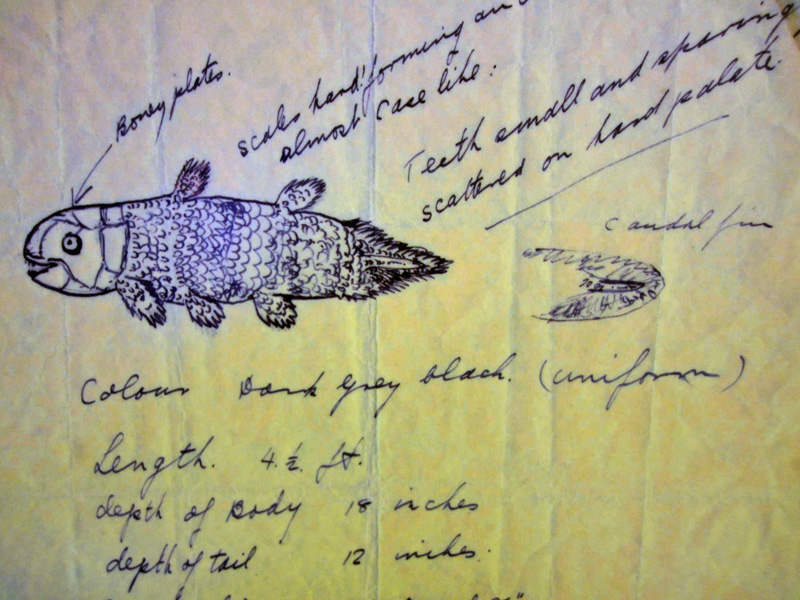 Boney plates.
scales hard! forming an
almost case like:
Teeth small and sparing
scattered on hard palate
caudal fin
Colour Dark grey black. (uniform)
Length. 4.½. ft.
depth of Body 18 inches
depth of tail 12 inches.